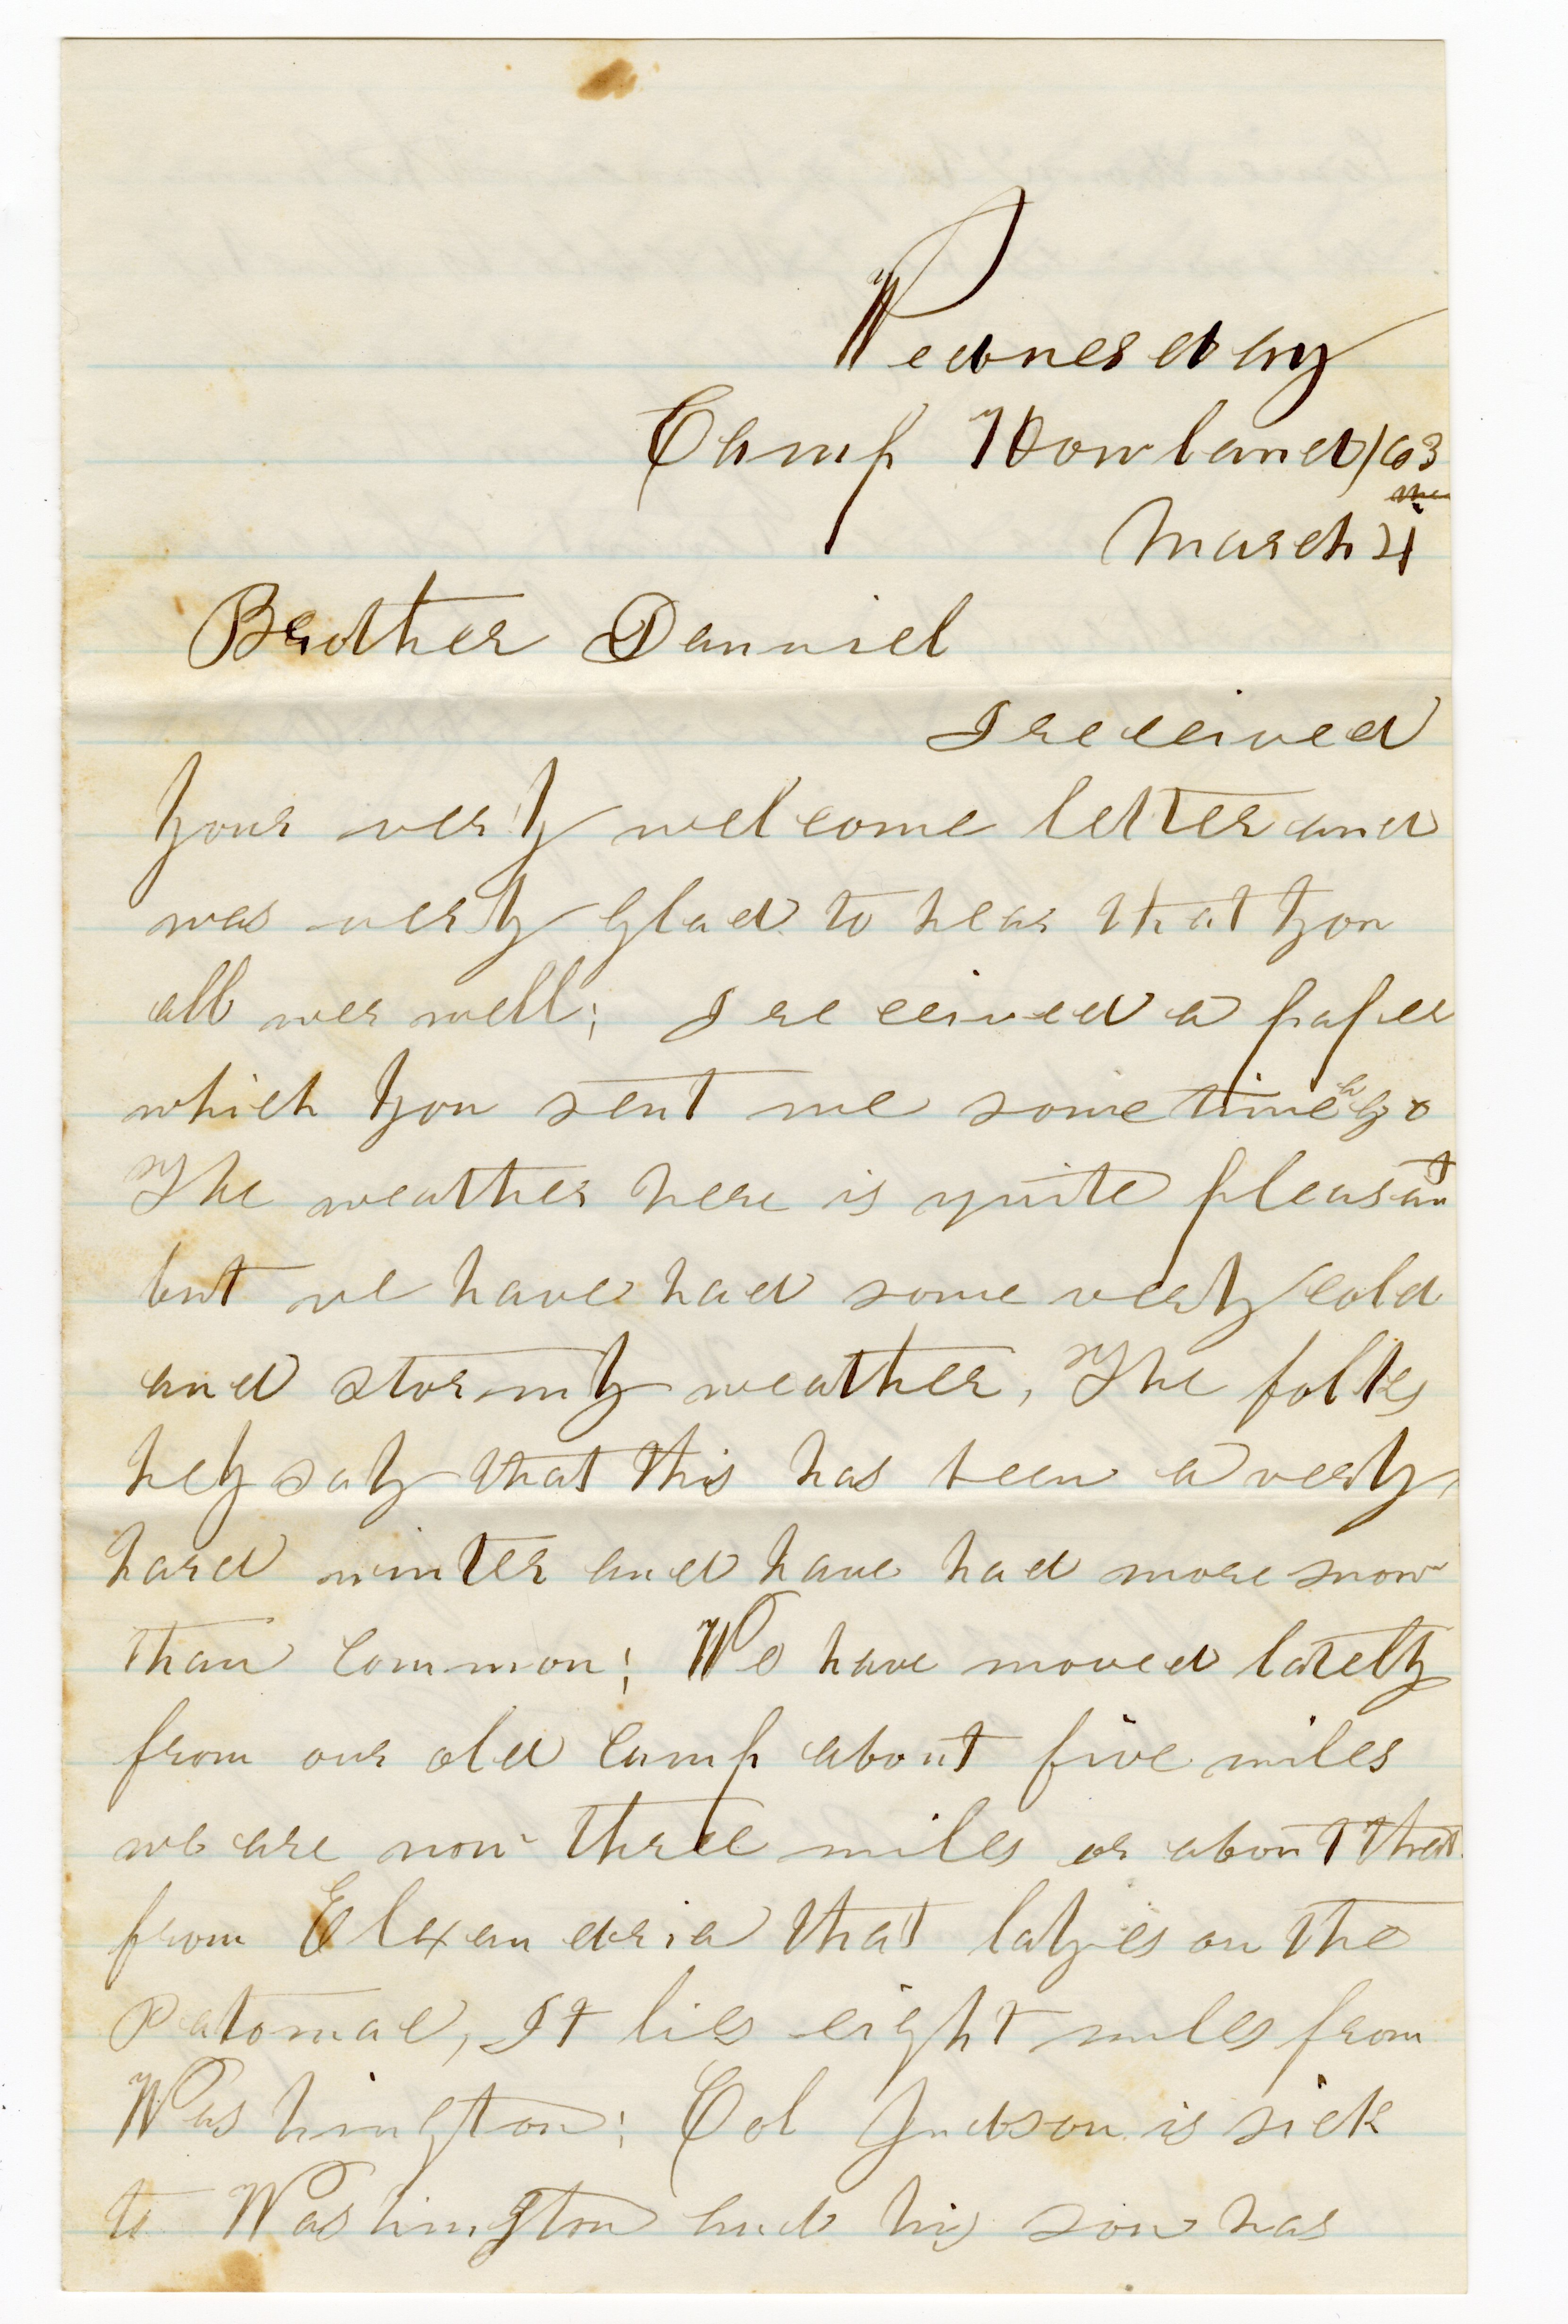 Wednesday
Camp Howland/63
March 4
Brother Danniel
I received
your very welcome letter and
was very glad to hear that you
all wer well; I received a paper
which you sent me some time ago
The weather here is quite pleasant
but we have had some very cold
and stormy weather, The folks
hey say that this has been a very
hard winter and have had more snow
than common; We have moved lately
from our old camp about five miles
we are now three miles or about that
from Elexandria that layes on the
Patomac, It lies eight miles from
Washington; Col Judson is sick
to Washington and his son has